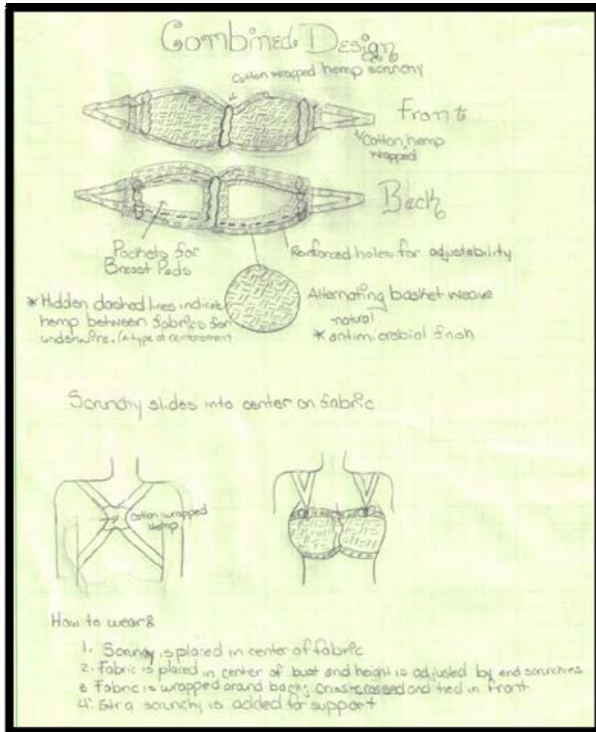 Combined Design
Cotton wrapped hemp scrunchy
Front
Cotton, hemp
wrapped
Back
Pockets for
Breast Pads
Reinforced holes for adjustability
*Hidden dashed lines indicate
hemp between fabrics for
underwire. (A type of reinforcement
Alternating basket weave
natural
*antimicrobial finish
Scrunchy slides into center on fabric
Cotton wrapped
Hemp
How to wear:
1. Scrunchy is placed in center of fabric
2. Fabric is placed in center of bust and height is adjusted by end scrunchies
3 Fabric is wrapped around back; crisscrossed and tied in front
4. Extra scrunchy is added for support